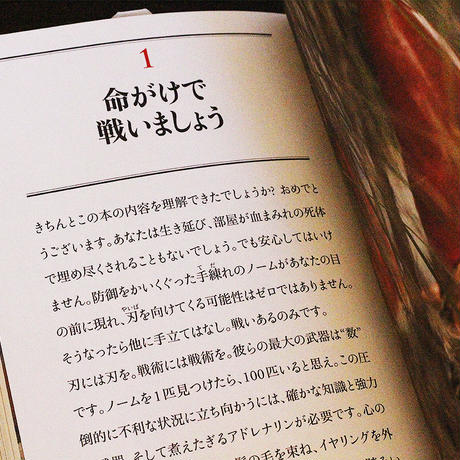 1
命がけで
戦いましょう
きちんとこの本の内容を理解できたでしょうか? おめでと
うございます。あなたは生き延び、部屋が血まみれの死体
で埋め尽くされることもないでしょう。でも安心してはいけ
ません。防御をかいくぐった手練れのノームがあなたの目
の前に現れ、刃を向けてくる可能性はゼロではありません。
そうなったら他に手立てはなし。戦いあるのみです。
刃には刃を。戦術には戦術を。彼らの最大の武器は“数”
です。ノームを1匹見つけたら、100匹いると思え。この圧
倒的に不利な状況に立ち向かうには、確かな知識と強力
そして煮えたぎるアドレナリンが必要です。心の
の毛を束ね、イヤリングを外